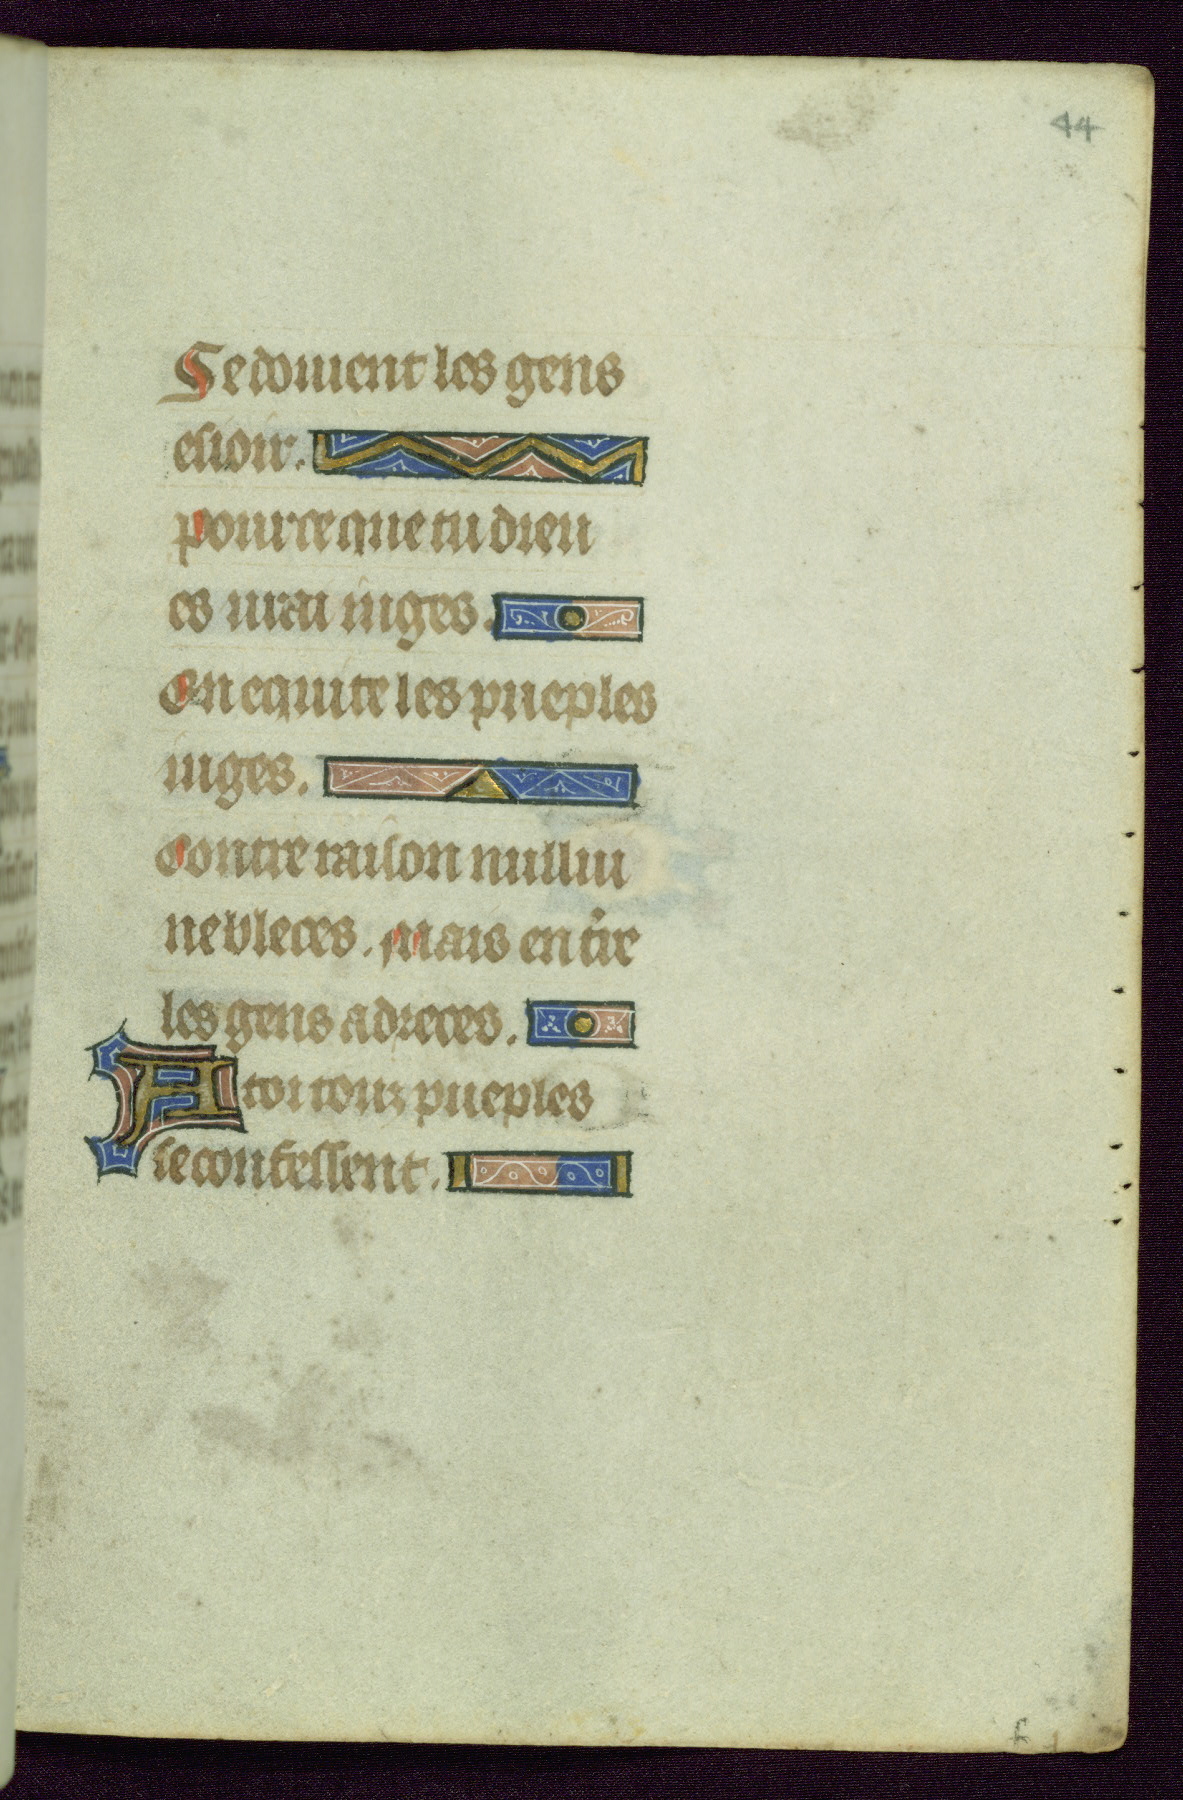 44
Se doiuent les gens
esioir.
pour ce que tu dieu
es urai iuges.
En equite les pueples
iuges.
Contre raison nullui
ne bleces. Mais en tir̄e
les gens adreces.
A toi touz pueples
se confessent.